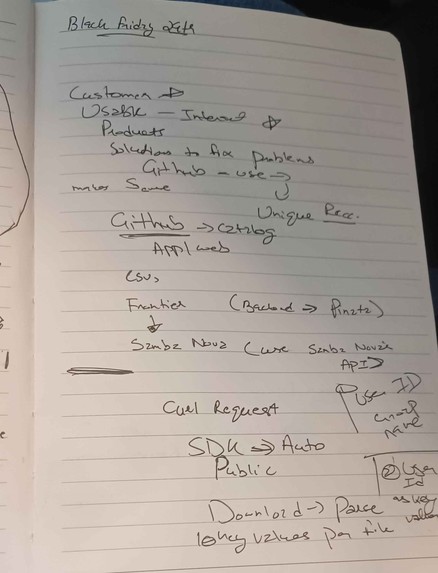 Black friday
Customer →
Usage — Internet
Products
Solutions to fix problems
Github - use →
makes Sense
Unique Rec.
Github → catalog
APP/web
Csv,
Frontier (Backend →
Samba Nova (use Samba Nova's
API)
User ID
Group
name
Curl Request
SDK → Auto
Public
② User
Id
as key
value
Download → Parse
10 key values per file